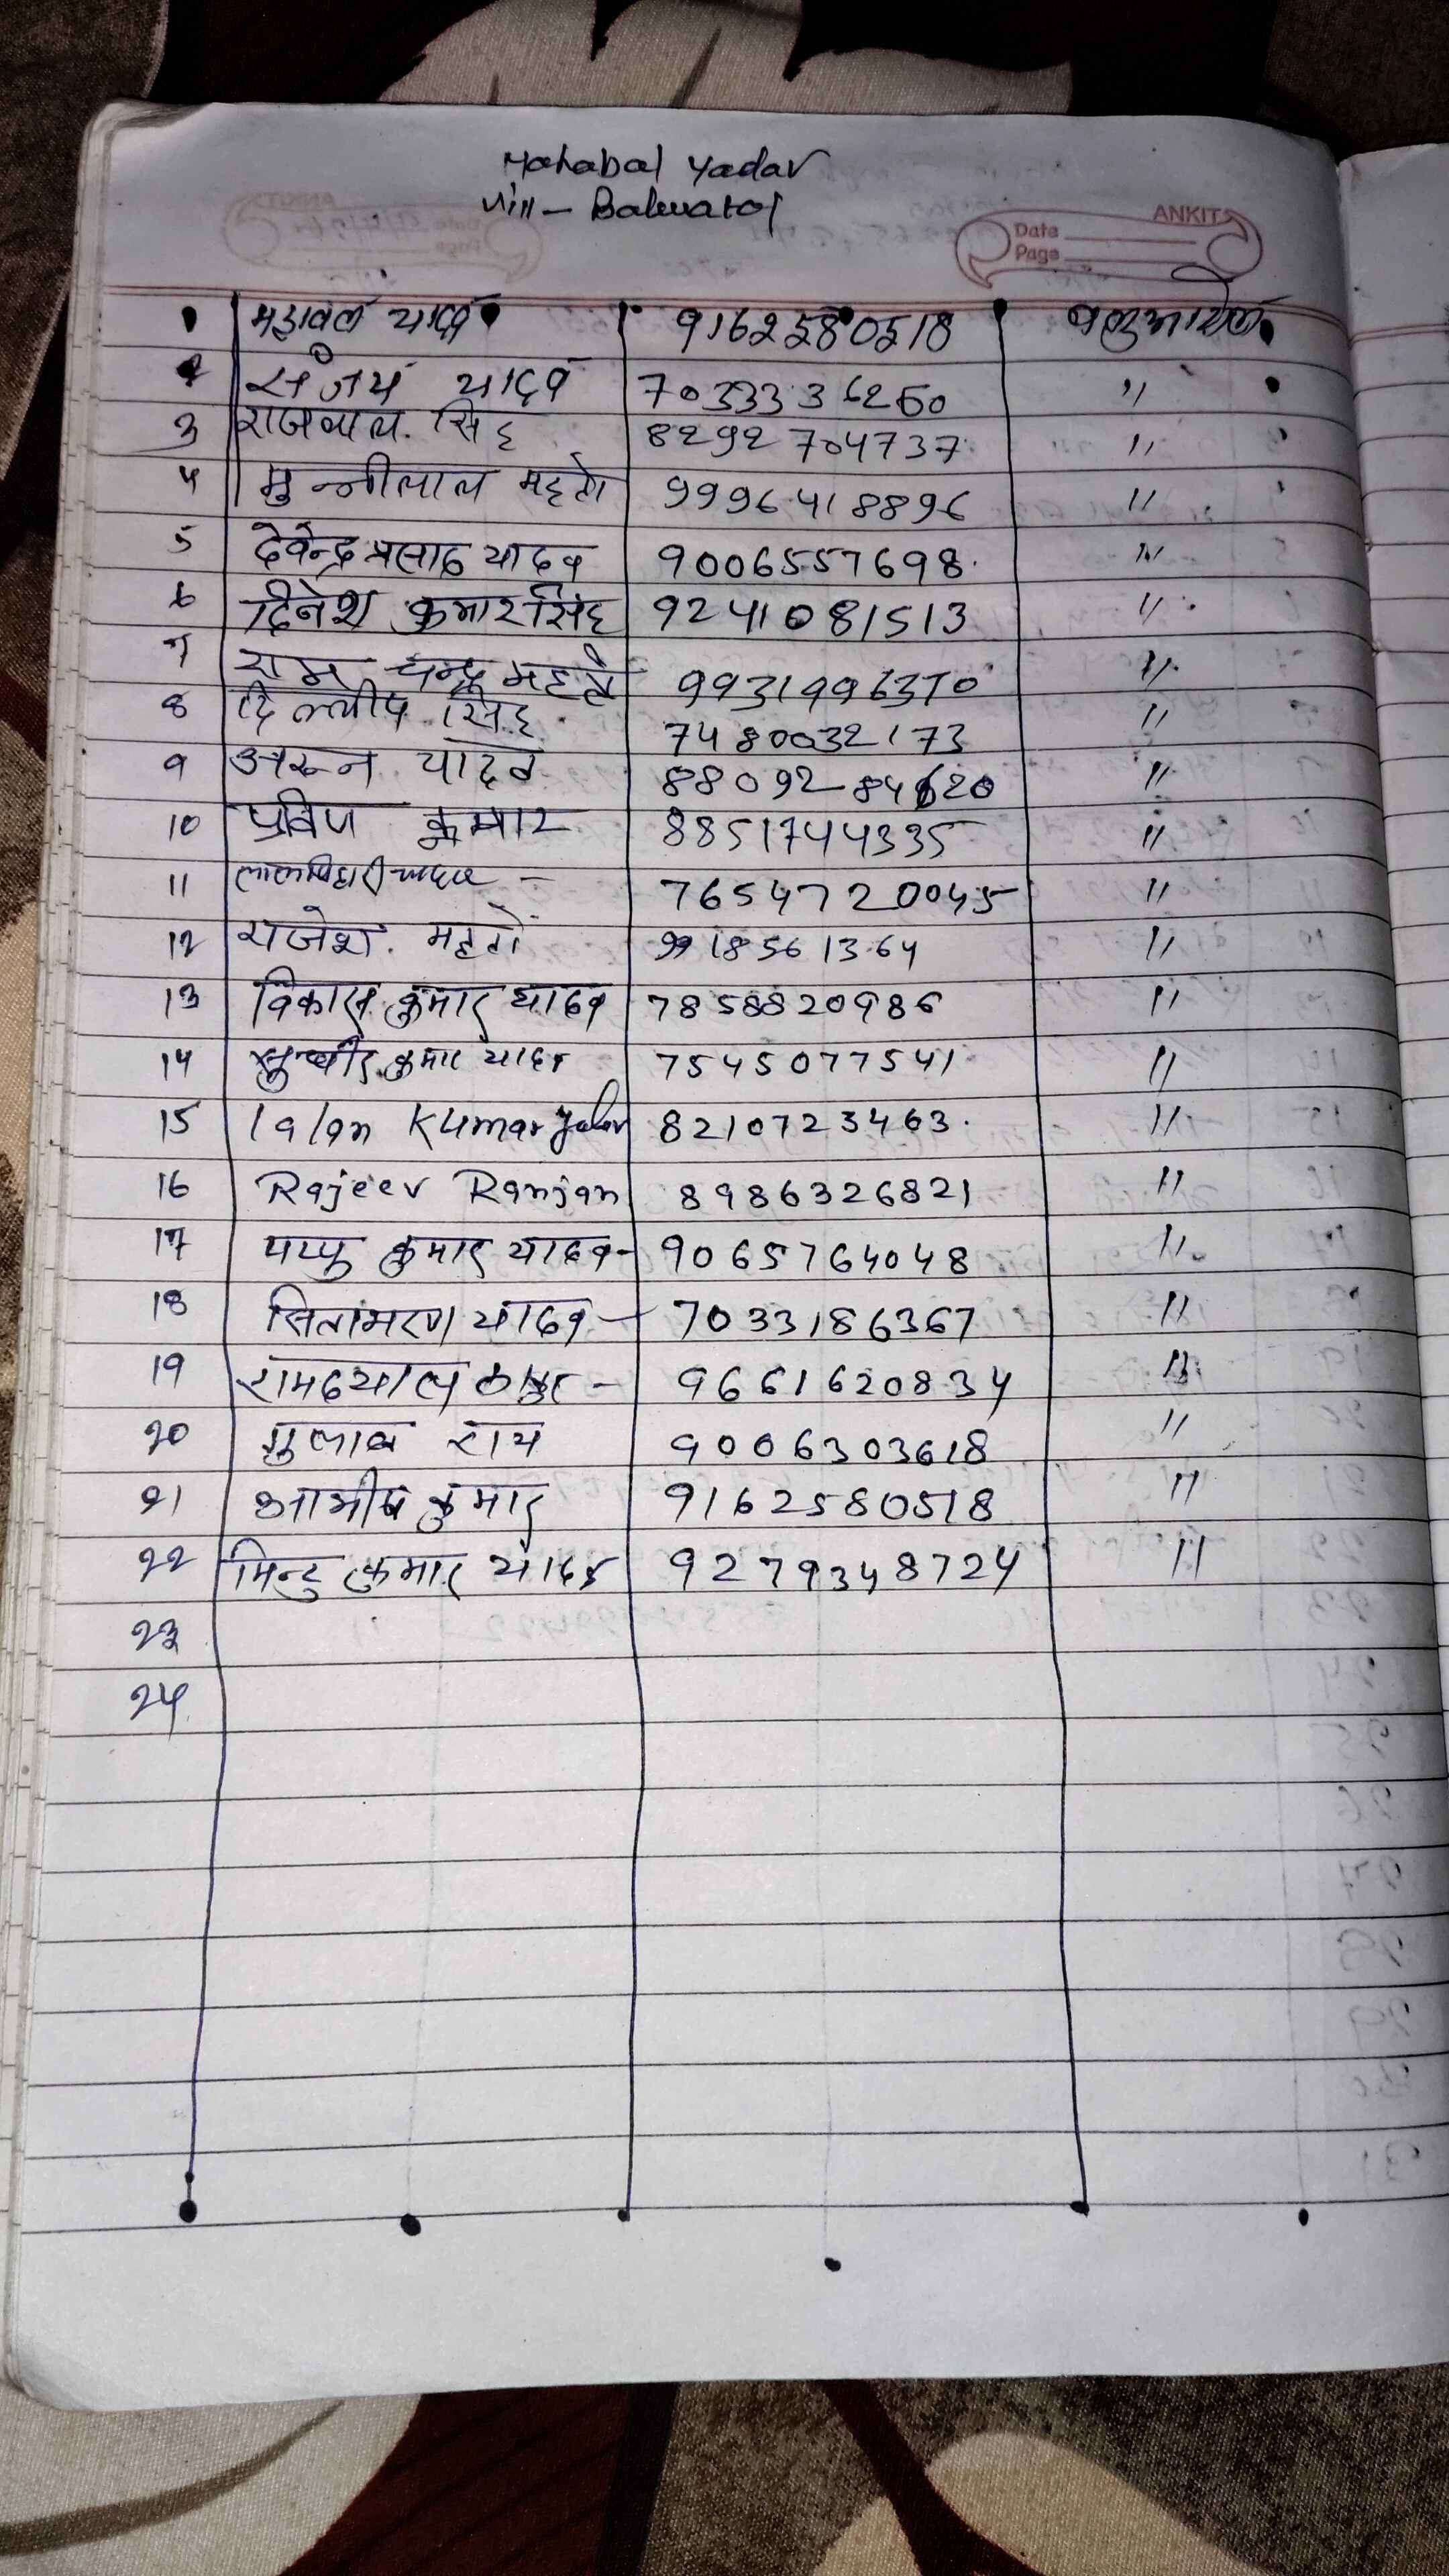 Mahabal Yadav
Vill - Balwatol
ANKIT
Date
Page
1 महाबल यादव 9162580518
2 संजय यादव 7033336260 "
3 राजबाल सिंह 8292704737 "
4 मुन्नीलाल महतो 9996418896 "
5 देवेन्द्र प्रसाद यादव 9006557698 "
6 दिनेश कुमार सिंह 9241081513 "
7 राम चन्द्र महतो 9931996370 "
8 दिल्लीप सिंह 7480032173 "
9 अरून यादव 8809284620 "
10 प्रविण कुमार 8851744335 "
11 लालबिहारी यादव - 7654720045 "
12 राजेश महतो 9918561364 "
13 विकास कुमार यादव 7858820986 "
14 सुधीर कुमार यादव 7545077541 "
15 lalan Kumar Yadav 8210723463 "
16 Rajeev Ranjan 8986326821 "
17 पप्पु कुमार यादव - 9065764048 "
18 सितामरण यादव - 7033186367 "
19 रामदयाल ठाकुर - 9661620834 "
20 गुलाब राय 9006303618 "
21 आशीष कुमार 9162580518 "
22 मिन्टु कुमार यादव 9279348724 "
23
24